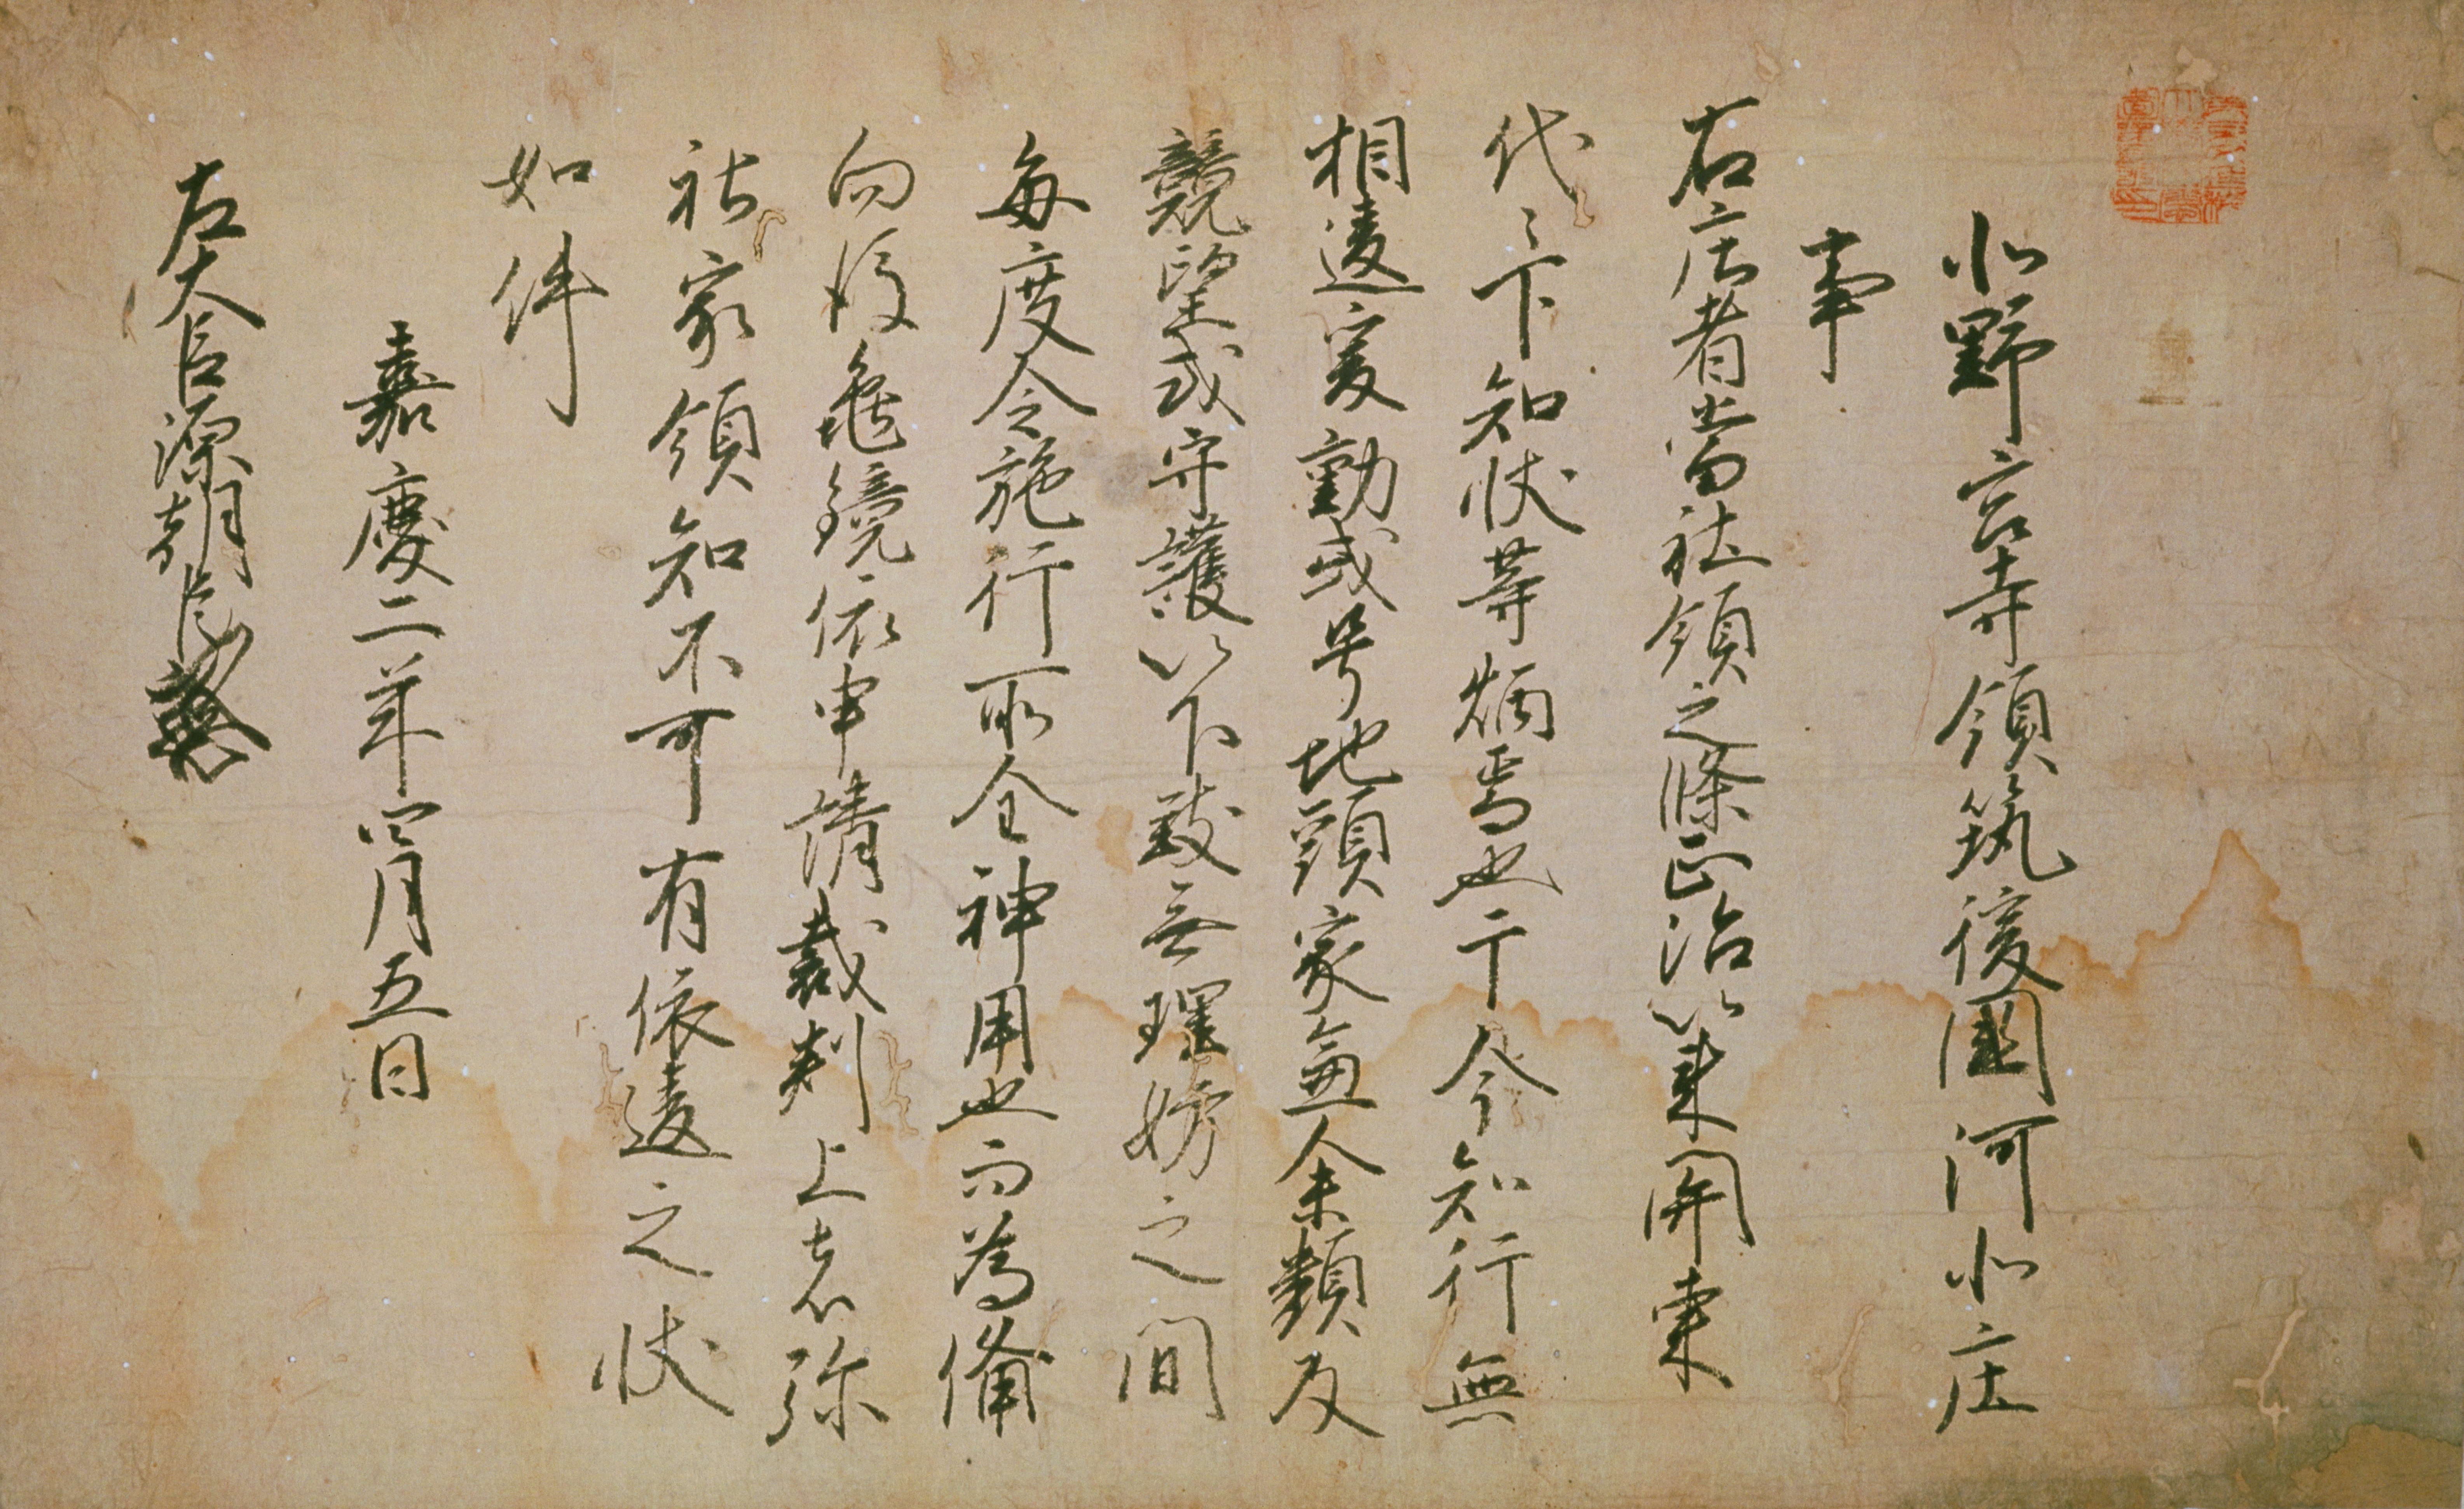 北野宮寺領筑後國河北庄
事
右庄者當社領之條正治以来開東
代々下知状等炳焉也于今知行無
相違爰動或号地頭家無余類及
競望或守護以下致無理妨之間
毎度令施行所全神用也而為備
向後亀鏡依申請裁判上者弥
社家領知不可有依違之状
如件
嘉慶二年四月五日
左大臣源朝臣